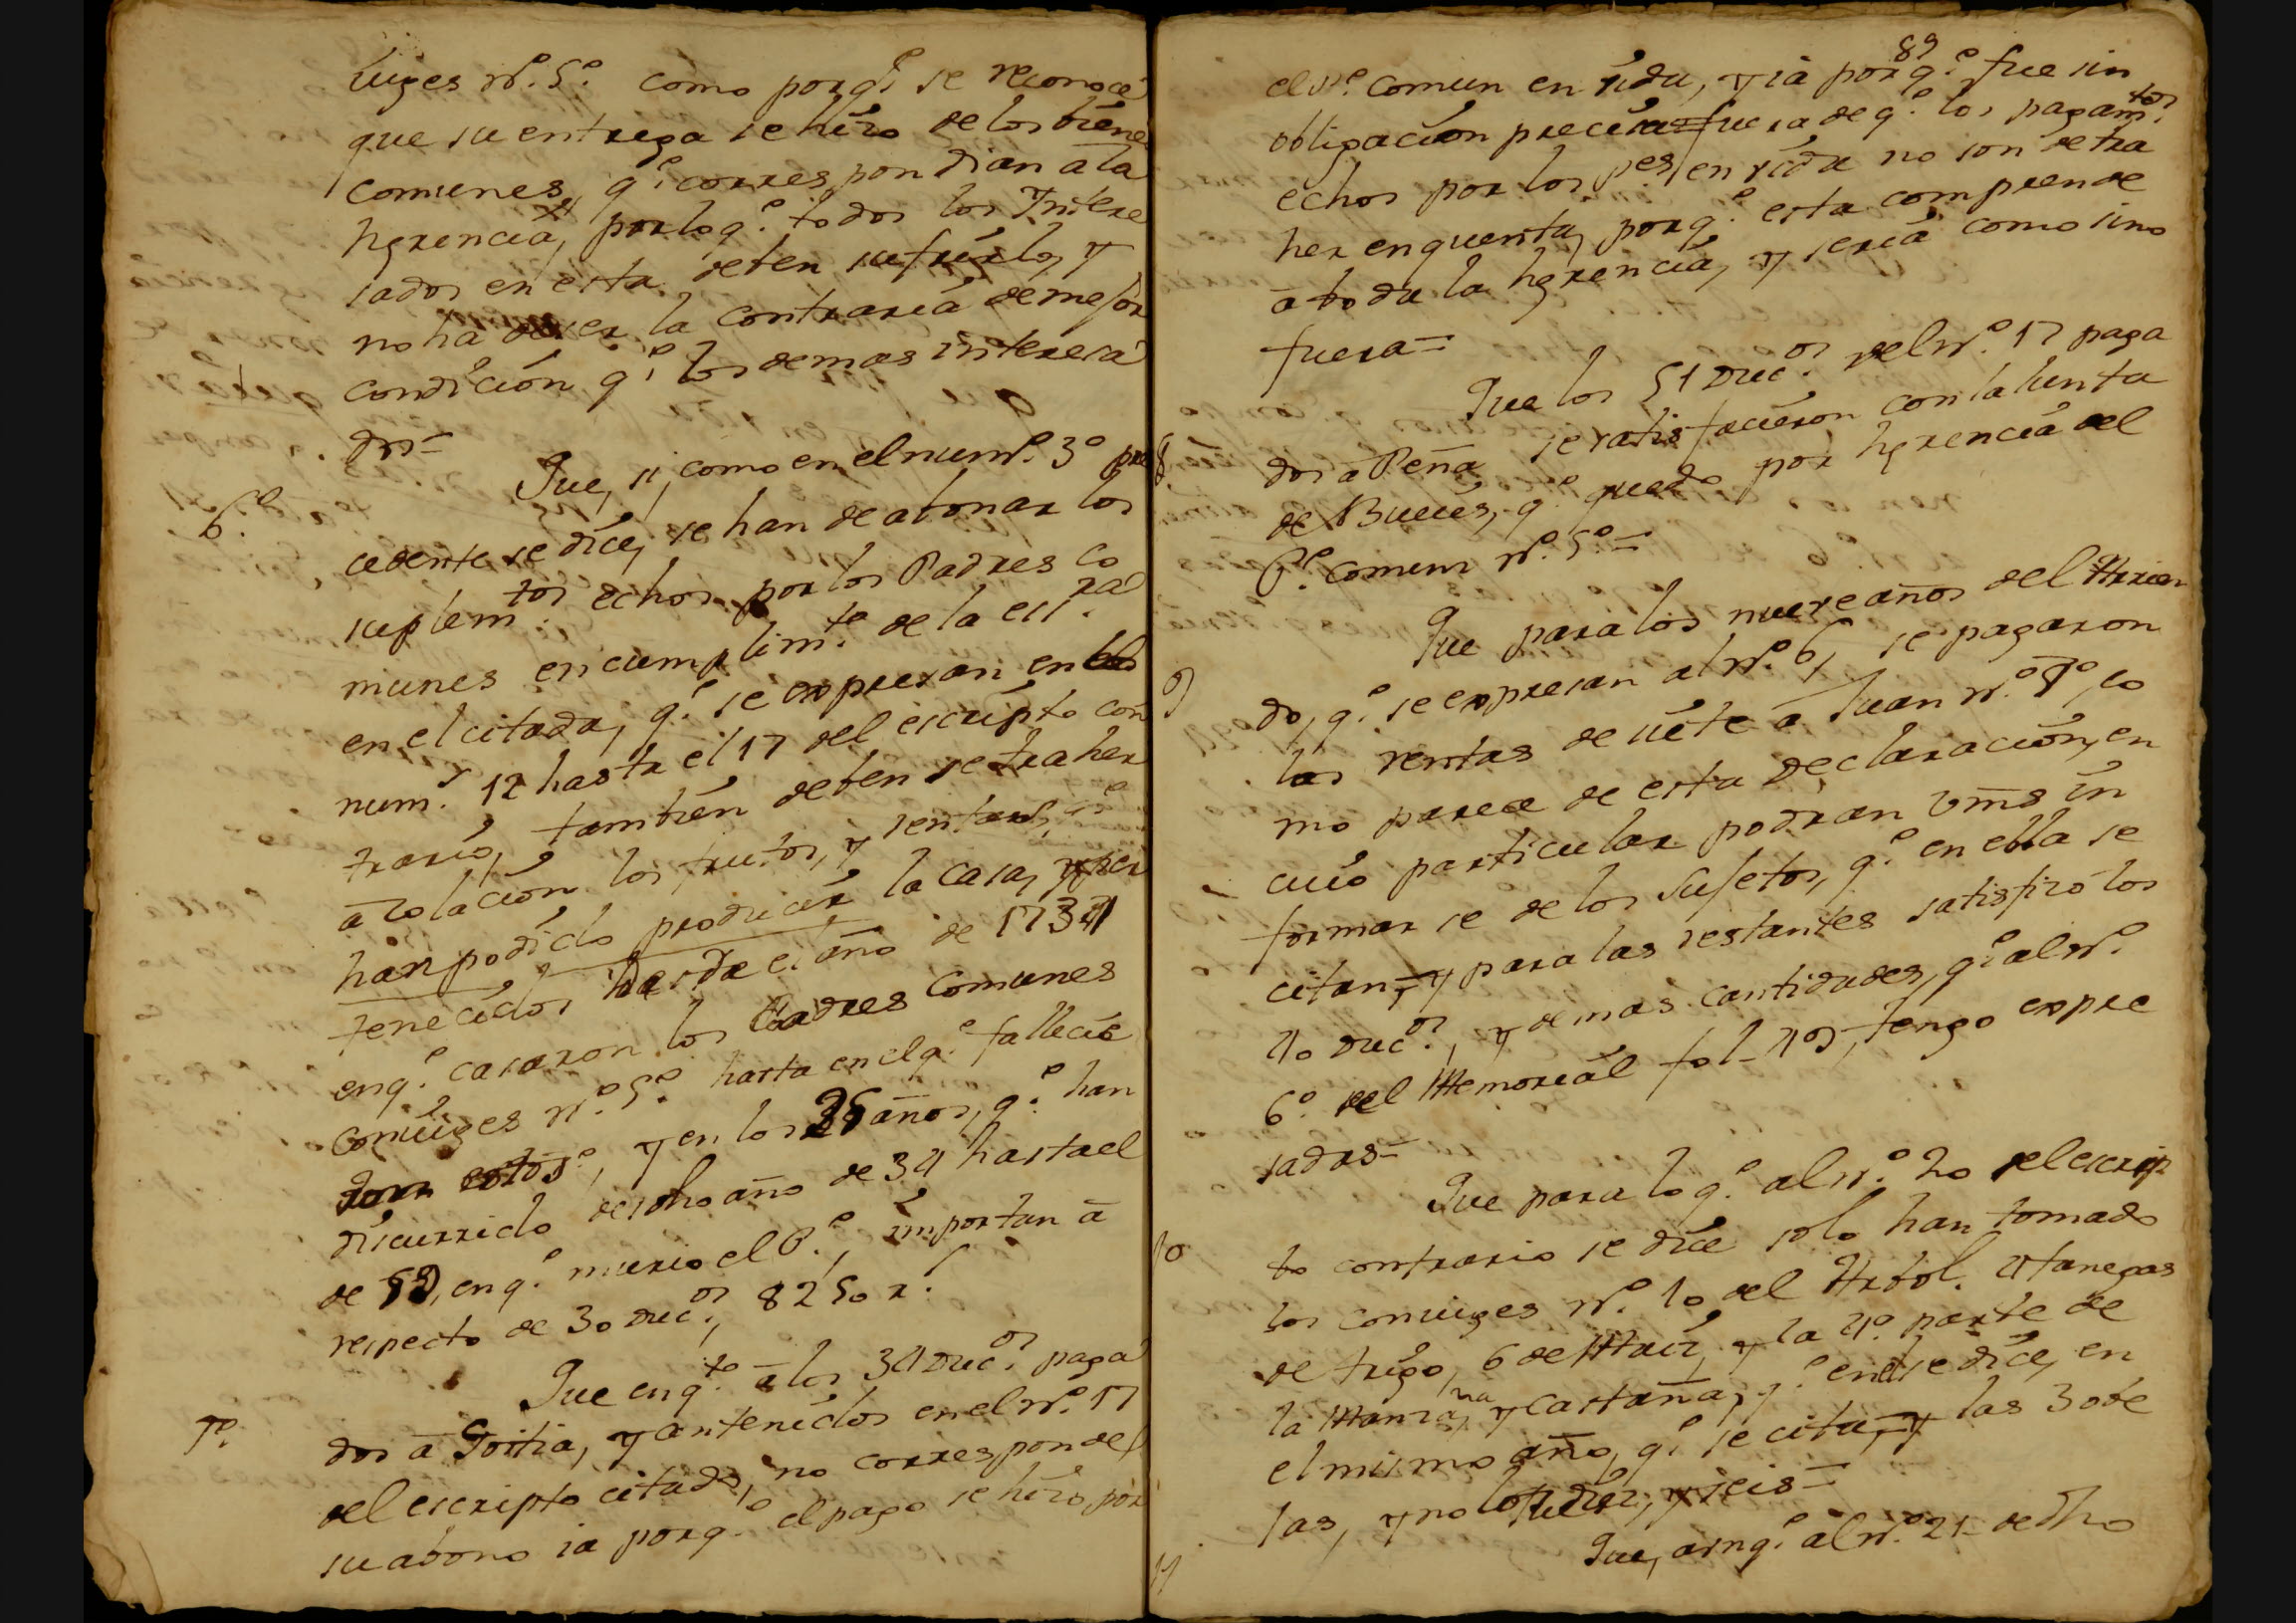 iuges nº. 5º. como porq.e se reconoce
que su entrega se hizo de los biene
comunes, q.e correspondian a la
herencia, por lo q.e todos los Intere
sados en esta deben sufrirlo, y
no ha de ser la contraria de mejor
condicion q.e los demas interesa
dos=
6º. Que, si, como en el num.º 3º pre
cedente se dice, se han de abonar los
suplem.tos echos por los Padres co
munes en cumplim.to de la ess.ra
en el citada, q.e se expresan en
num.s 12 hasta el 17 del escripto con
trario, tambien deben se traher
a colacion los frutos, y rentas, q.e
han podido producir la casa, y per
tenecidos desde el año de 1734
en q.e casaron los Padres comunes
coniuges nº. 5º. hasta en el q.e fallecie
ron estos, y en los 25 años, q.e han
discurrido desde dho año de 34 hasta el
de 59, en q.e murio el P.e, importan a
respecto de 30 duc.os, 8250 r.s
7º. Que en q.to a los 34 duc.os paga
dos a Goitia, y contenidos en el nº. 17
del escripto citado, no corresponde
su abono ia porq.e el pago se hizo por
89
el P.e comun en vida, y ia porq.e fue sin
obligacion precisa= fuera de q.e los pagam.tos
echos por los P.es en vida no son de tra
her en quenta, porq.e esta comprende
a toda la herencia, y seria como sino
fuera=
8. Que los 51 duc.os del nº. 17 paga
dos a Peña se satisfacieron con la Junta
de Bueies, q.e quedo por herencia del
P.e comun nº. 5º=
9 Que para los nueve años del Arrien
do, q.e se expresan al nº. 6, se pagaron
las rentas de siete a Juan nº. 7º, co
mo parece de esta declaracion, en
cuio particular podran Vms in
formar se de los Sujetos, q.e en ella se
citan= y para las restantes satisfizo los
40 duc.os, y demas cantidades, q.e al nº.
6º. del Memorial fol. 49, tengo expre
sadas=
10 Que para lo q.e al nº. 20 del escrip
to contrario se dice solo han tomado
los coniuges nº. 10 del Arbol. 4 fanegas
de trigo, 6 de Maiz, y la 4ª. parte de
la Manzana, y castaña, q.e en el se dice, en
el mismo año, q.e se cita, y las 3 obe
jas, y no los diez, y seis=
11 Que, aunq.e al nº. 21 de dho